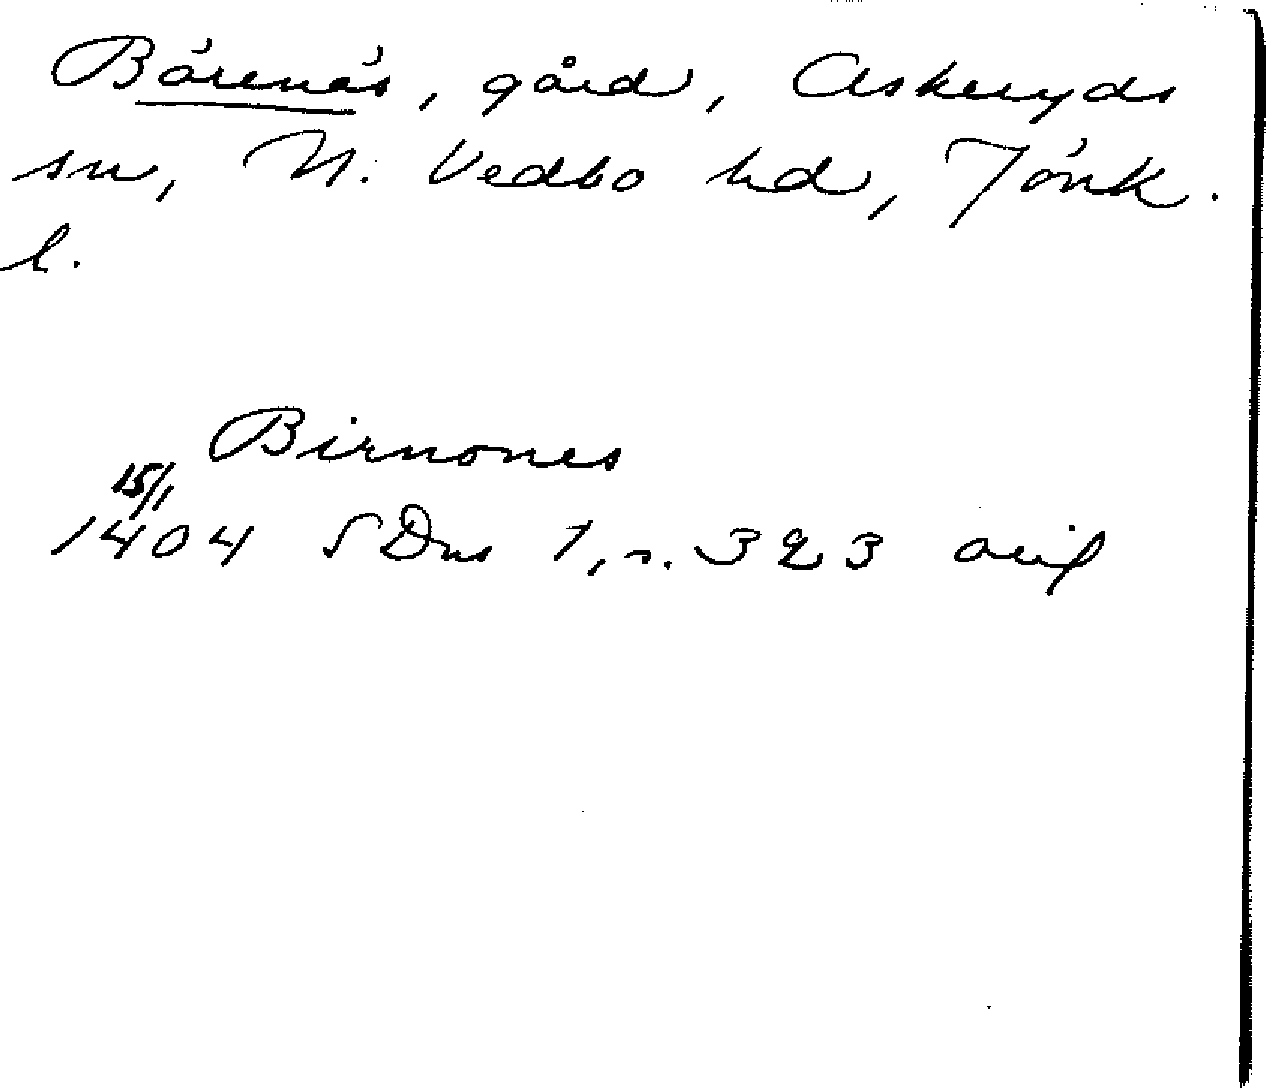 Bärenäs, gård, Askeryds
sn, N. Vedbo hd, Jönk.
l.
Birnones
15/1
1404 SDns 1, s. 323 avif